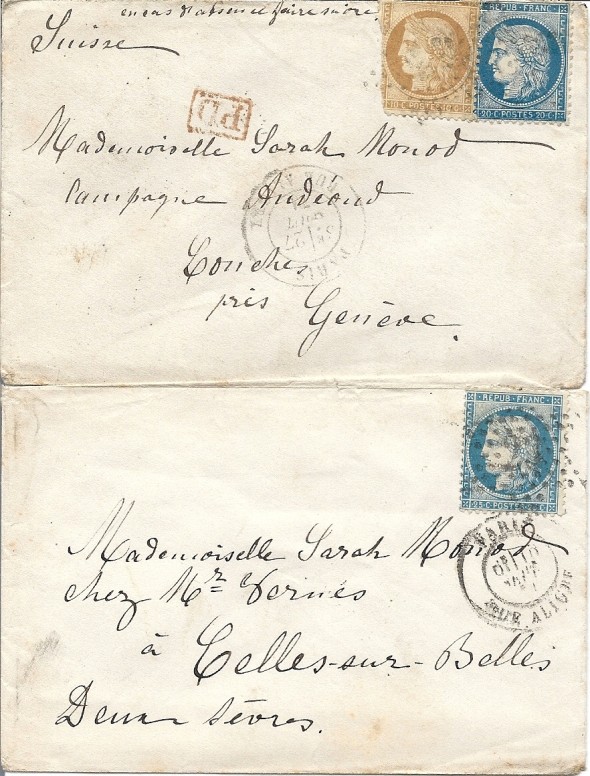 en cas d'absence faire suivre
Suisse
10 C POSTES 10 C
REPUB FRANC
20 C POSTES 20 C
PD
Mademoiselle Sarah Monod
Campagne Audeoud
Conches
près Genève
PARIS
REPUB FRANC
25 C POSTES
PARIS
RUE ALIGRE
Mademoiselle Sarah Monod
chez Mr Vernes
à Celles-sur-Belles
Deux Sèvres.